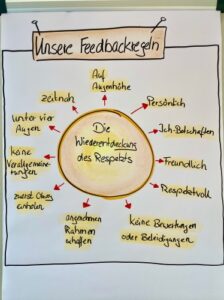 Unsere Feedbackregeln
Auf
Augenhöhe
Persönlich
Ich-Botschaften
Freundlich
Respektvoll
keine Bewertungen
oder Beleidigungen
angenehmen
Rahmen
schaffen
zuerst Okay
einholen
keine
Verallgemeine-
rungen
unter vier
Augen
zeitnah
Die
Wiederentdeckung
des Respekts